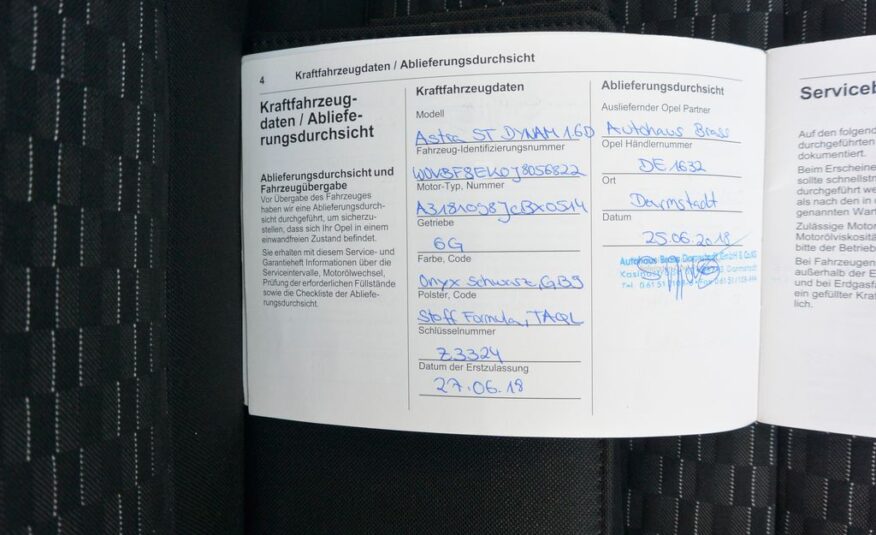 4 Kraftfahrzeugdaten / Ablieferungsdurchsicht
Kraftfahrzeug-
daten / Abliefe-
rungsdurchsicht
Ablieferungsdurchsicht und
Fahrzeugübergabe
Vor Übergabe des Fahrzeuges
haben wir eine Ablieferungsdurch-
sicht durchgeführt, um sicherzu-
stellen, dass sich Ihr Opel in einem
einwandfreien Zustand befindet.
Sie erhalten mit diesem Service- und
Garantieheft Informationen über die
Serviceintervalle, Motorölwechsel,
Prüfung der erforderlichen Füllstände
sowie die Checkliste der Abliefe-
rungsdurchsicht.
Kraftfahrzeugdaten
Modell
Astra ST DYNAM 1.6D
Fahrzeug-Identifizierungsnummer
W0VBF8EK0J8056822
Motor-Typ, Nummer
Getriebe
6G
Farbe, Code
Onyx Schwarz, GB9
Polster, Code
Stoff Formula, TAQL
Schlüsselnummer
Z3324
Datum der Erstzulassung
27.06.18
Ablieferungsdurchsicht
Ausliefernder Opel Partner
Autohaus Brass
Opel Händlernummer
DE 1632
Ort
Darmstadt
Datum
25.06.2018
Autohaus Brass Darmstadt GmbH & Co.KG
Darmstadt
Serviceb
Auf den folgend
durchgeführten
dokumentiert.
Beim Erscheine
sollte schnellstm
durchgeführt we
als nach den in
genannten Wart
Zulässige Motor
Motorölviskosität
bitte der Betrieb
Bei Fahrzeugen
außerhalb der E
und bei Erdgasf
ein gefüllter Kra
lich.